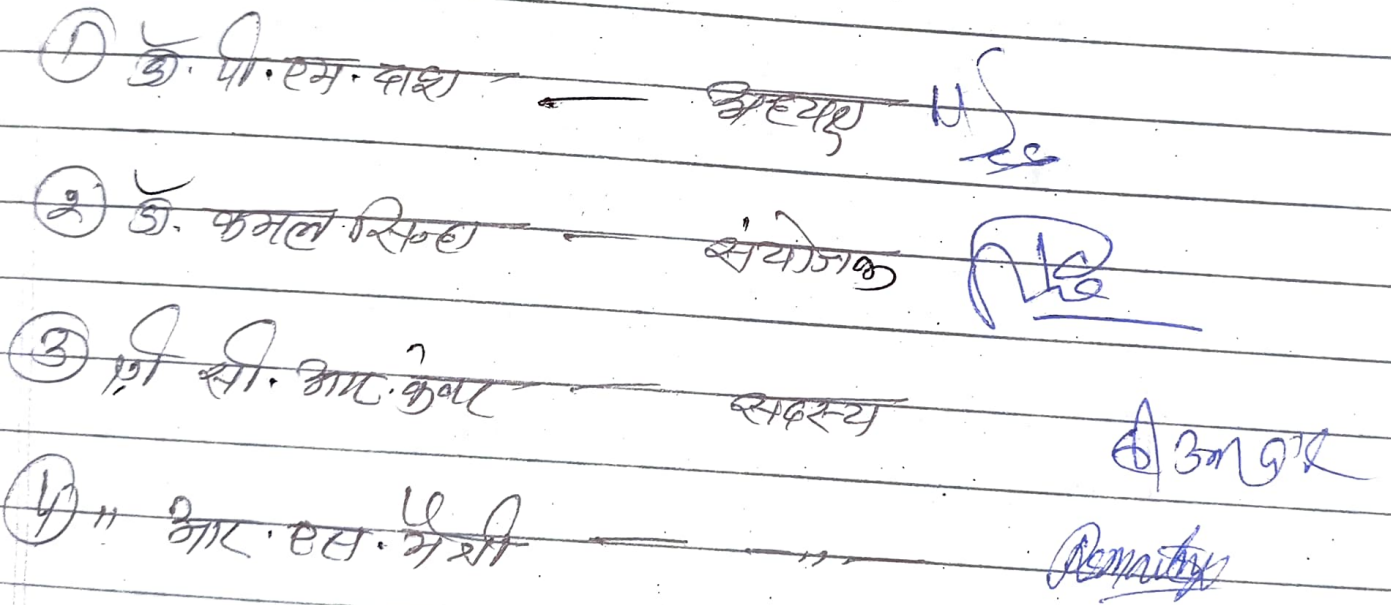 ① डॉ. पी. एम. दाश — अध्यक्ष
② डॉ. कमल सिन्हा — संयोजक
③ श्री सी. आर. केवर — सदस्य
④ " आर. एस. मैत्री — — " —